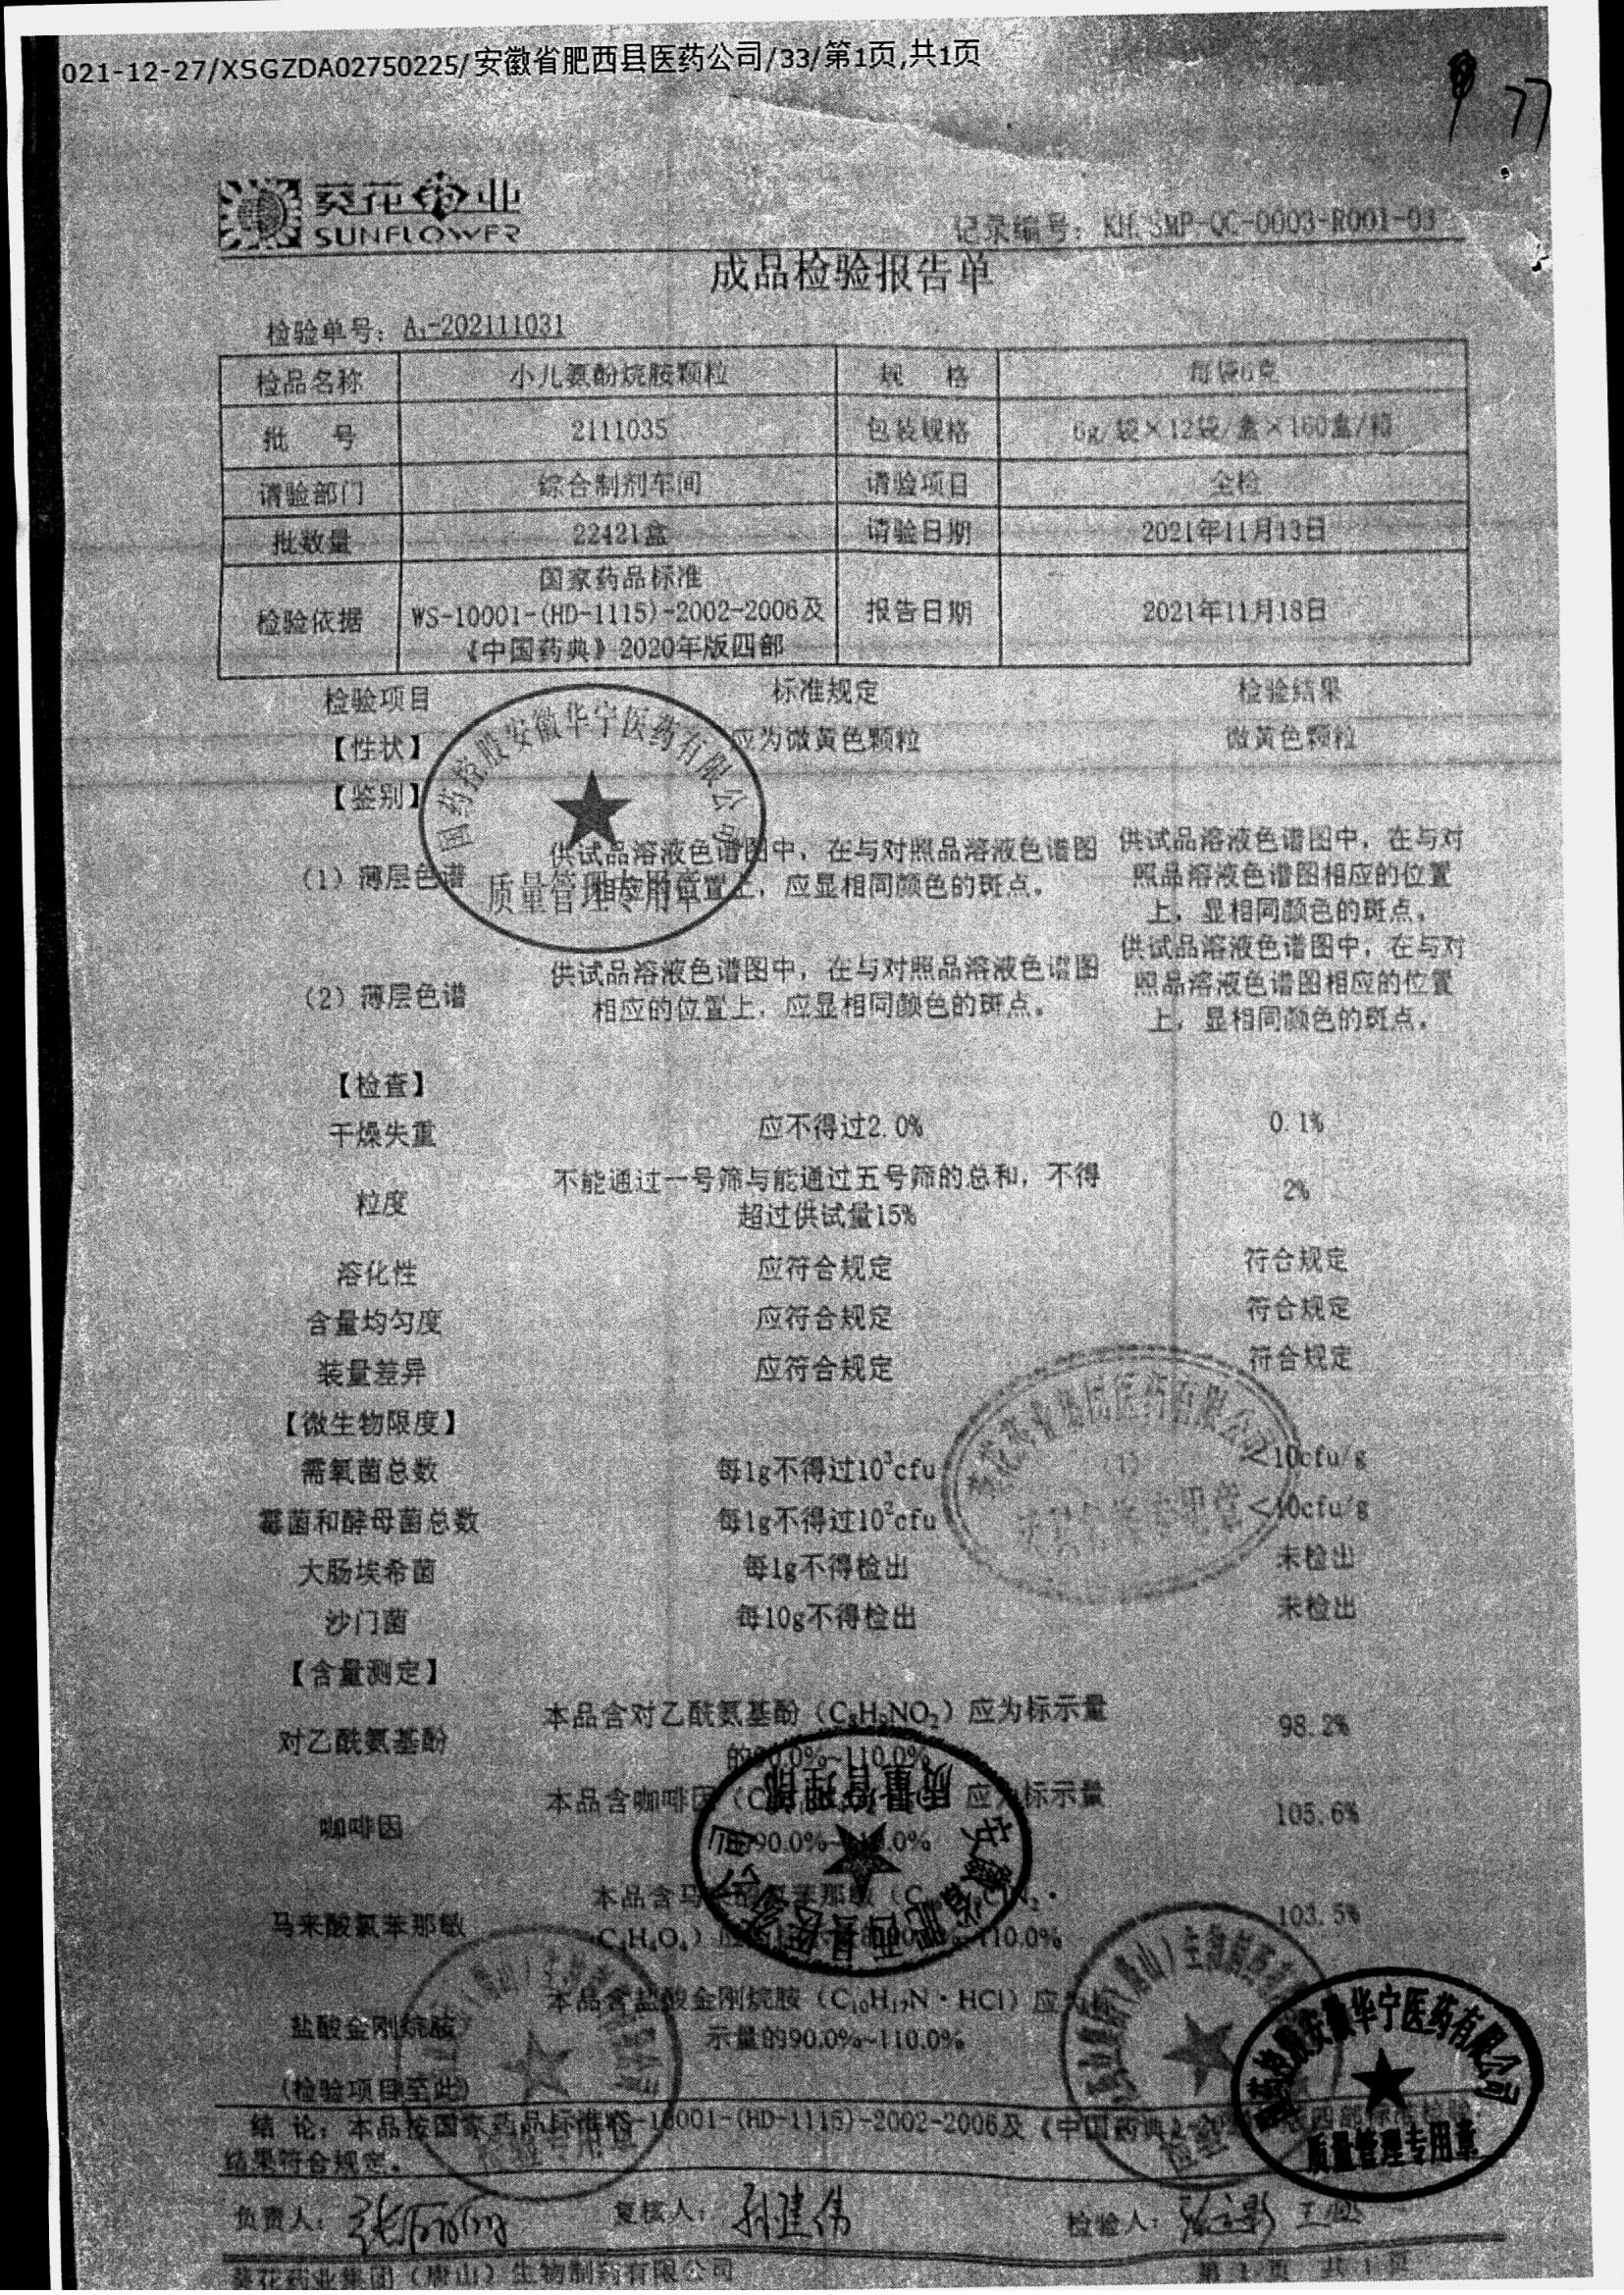 021-12-27/XSGZDA02750225/安徽省肥西县医药公司/33/第1页,共1页
77
葵花药业
SUNFLOWER
记录编号：KH.SMP-QC-0003-R001-03
成品检验报告单
检验单号：A₁-202111031
检品名称 小儿氨酚烷胺颗粒 规 格 每袋6克
批 号 2111035 包装规格 6g/袋×12袋/盒×160盒/箱
请验部门 综合制剂车间 请验项目 全检
批数量 22421盒 请验日期 2021年11月13日
国家药品标准
检验依据 WS-10001-(HD-1115)-2002-2006及 报告日期 2021年11月18日
《中国药典》2020年版四部
检验项目 标准规定 检验结果
【性状】 应为微黄色颗粒 微黄色颗粒
【鉴别】
国药控股安徽华宁医药有限公司
质量管理专用章
（1）薄层色谱
供试品溶液色谱图中，在与对照品溶液色谱图
相应的位置上，应显相同颜色的斑点。
供试品溶液色谱图中，在与对
照品溶液色谱图相应的位置
上，显相同颜色的斑点。
（2）薄层色谱
供试品溶液色谱图中，在与对照品溶液色谱图
相应的位置上，应显相同颜色的斑点。
供试品溶液色谱图中，在与对
照品溶液色谱图相应的位置
上，显相同颜色的斑点。
【检查】
干燥失重 应不得过2.0% 0.1%
粒度
不能通过一号筛与能通过五号筛的总和，不得
超过供试量15%
2%
溶化性 应符合规定 符合规定
含量均匀度 应符合规定 符合规定
装量差异 应符合规定 符合规定
【微生物限度】
需氧菌总数 每1g不得过10³cfu <10cfu/g
霉菌和酵母菌总数 每1g不得过10²cfu <10cfu/g
大肠埃希菌 每1g不得检出 未检出
沙门菌 每10g不得检出 未检出
葵花药业集团医药有限公司
【含量测定】
对乙酰氨基酚
本品含对乙酰氨基酚（C₈H₉NO₂）应为标示量
的90.0%~110.0%
98.2%
咖啡因
本品含咖啡因 应为标示量
90.0%~110.0%
105.6%
安徽省肥西县医药公司
质量管理部
马来酸氯苯那敏
本品含马来酸氯苯那敏
C₄H₄O₄） 110.0%
103.5%
盐酸金刚烷胺
本品含盐酸金刚烷胺（C₁₀H₁₇N·HCl）应为标
示量的90.0%~110.0%
（检验项目至此）
国药控股安徽华宁医药有限公司
质量管理专用章
结 论：本品按国家药品标准WS-10001-(HD-1115)-2002-2006及《中国药典》 四部标准检验，
结果符合规定。
检验专用章
负责人： 复核人： 检验人：
葵花药业集团（唐山）生物制药有限公司 第 1 页 共 1 页